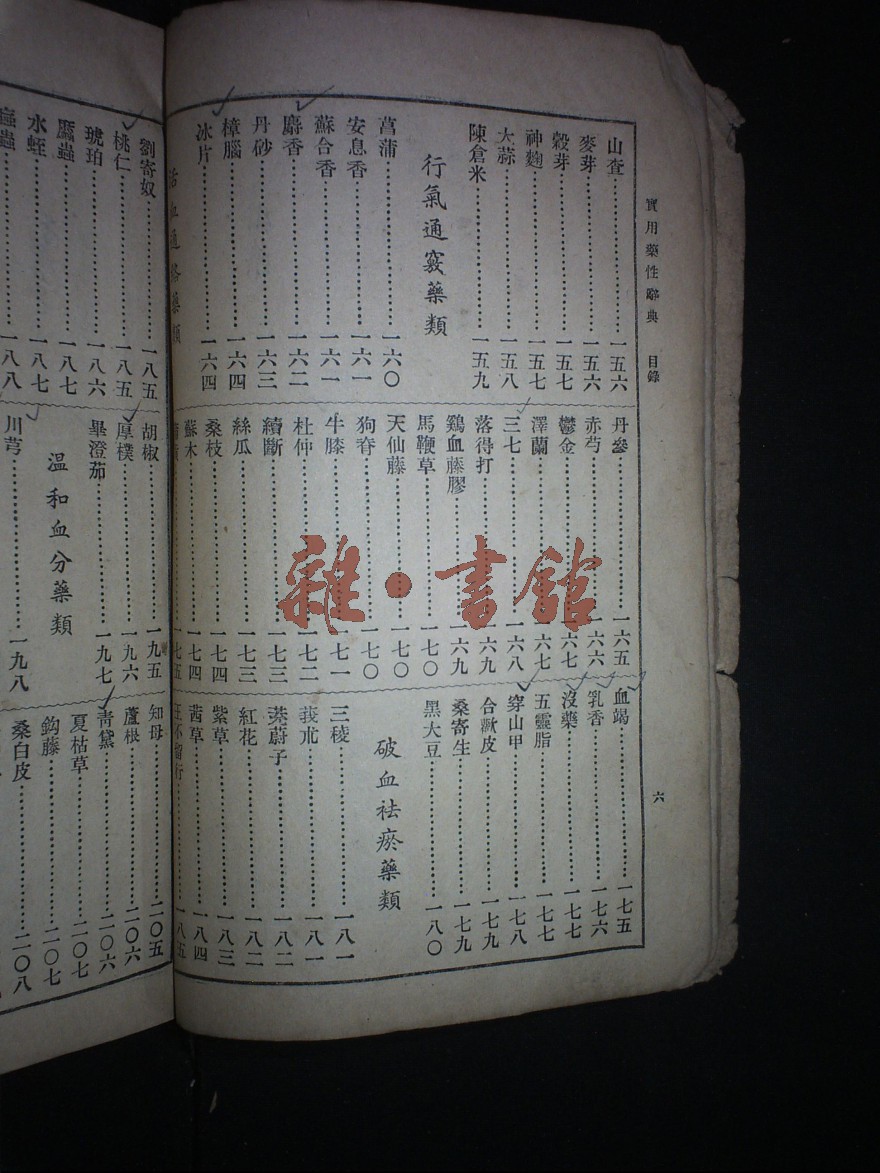 實用藥性辭典 目錄
六
山查一五六
麥芽一五六
穀芽一五七
神麯一五七
大蒜一五八
陳倉米一五九
行氣通竅藥類
菖蒲一六〇
安息香一六一
蘇合香一六一
麝香一六二
丹砂一六三
樟腦一六四
冰片一六四
活血通絡藥類
丹參一六五
赤芍一六六
鬱金一六七
澤蘭一六七
三七一六八
落得打一六九
鷄血藤膠一六九
馬鞭草一七〇
天仙藤一七〇
狗脊一七〇
牛膝一七一
杜仲一七二
續斷一七三
絲瓜一七三
桑枝一七四
蘇木一七四
一七五
血竭一七五
乳香一七六
沒藥一七七
五靈脂一七七
穿山甲一七八
合歡皮一七九
桑寄生一七九
黑大豆一八〇
破血祛瘀藥類
三稜一八一
莪朮一八一
茺蔚子一八二
紅花一八二
紫草一八三
茜草一八四
王不留行一八五
劉寄奴一八五
桃仁一八五
琥珀一八六
䗪蟲一八七
水蛭一八七
蝱蟲一八八
胡椒一九五
厚樸一九六
畢澄茄一九七
温和血分藥類
川芎一九八
知母二〇五
蘆根二〇六
青黛二〇六
夏枯草二〇七
鈎藤二〇七
桑白皮二〇八
雜·書館